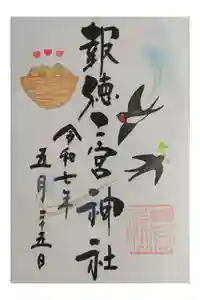 報徳二宮神社
令和七年
五月二十五日